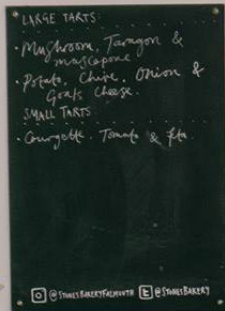 LARGE TARTS:
• Mushroom, Taragon &
mascapone
• Potato, Chive, Onion &
Goats Cheese.
SMALL TARTS
• Courgette, Tomato & feta.
@STONESBAKERYFALMOUTH @STONESBAKERY